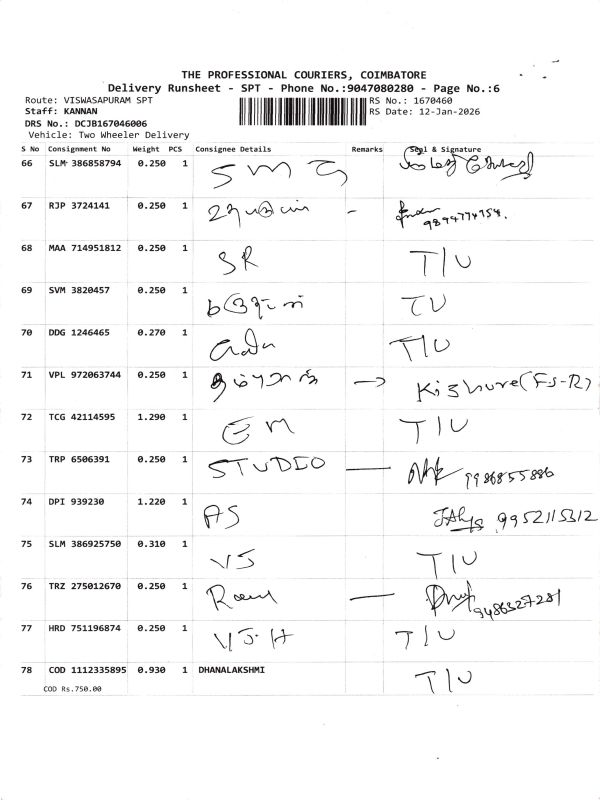 THE PROFESSIONAL COURIERS, COIMBATORE
Delivery Runsheet - SPT - Phone No.:9047080280 - Page No.:6
Route: VISWASAPURAM SPT RS No.: 1670460
Staff: KANNAN RS Date: 12-Jan-2026
DRS No.: DCJB167046006
Vehicle: Two Wheeler Delivery
S No Consignment No Weight PCS Consignee Details Remarks Seal & Signature
66 SLM 386858794 0.250 1 SMG
67 RJP 3724141 0.250 1 -
9894774754.
68 MAA 714951812 0.250 1 SR T/U
69 SVM 3820457 0.250 1 TU
70 DDG 1246465 0.270 1 T/U
71 VPL 972063744 0.250 1 → Kishure(FS-R)
72 TCG 42114595 1.290 1 GM T/U
73 TRP 6506391 0.250 1 STUDIO — 9986855886
74 DPI 939230 1.220 1 AS 9952115312
75 SLM 386925750 0.310 1 VS T/U
76 TRZ 275012670 0.250 1 Ram — 9486327281
77 HRD 751196874 0.250 1 V.J.H T/U
78 COD 1112335895 0.930 1 DHANALAKSHMI T/U
COD Rs.750.00